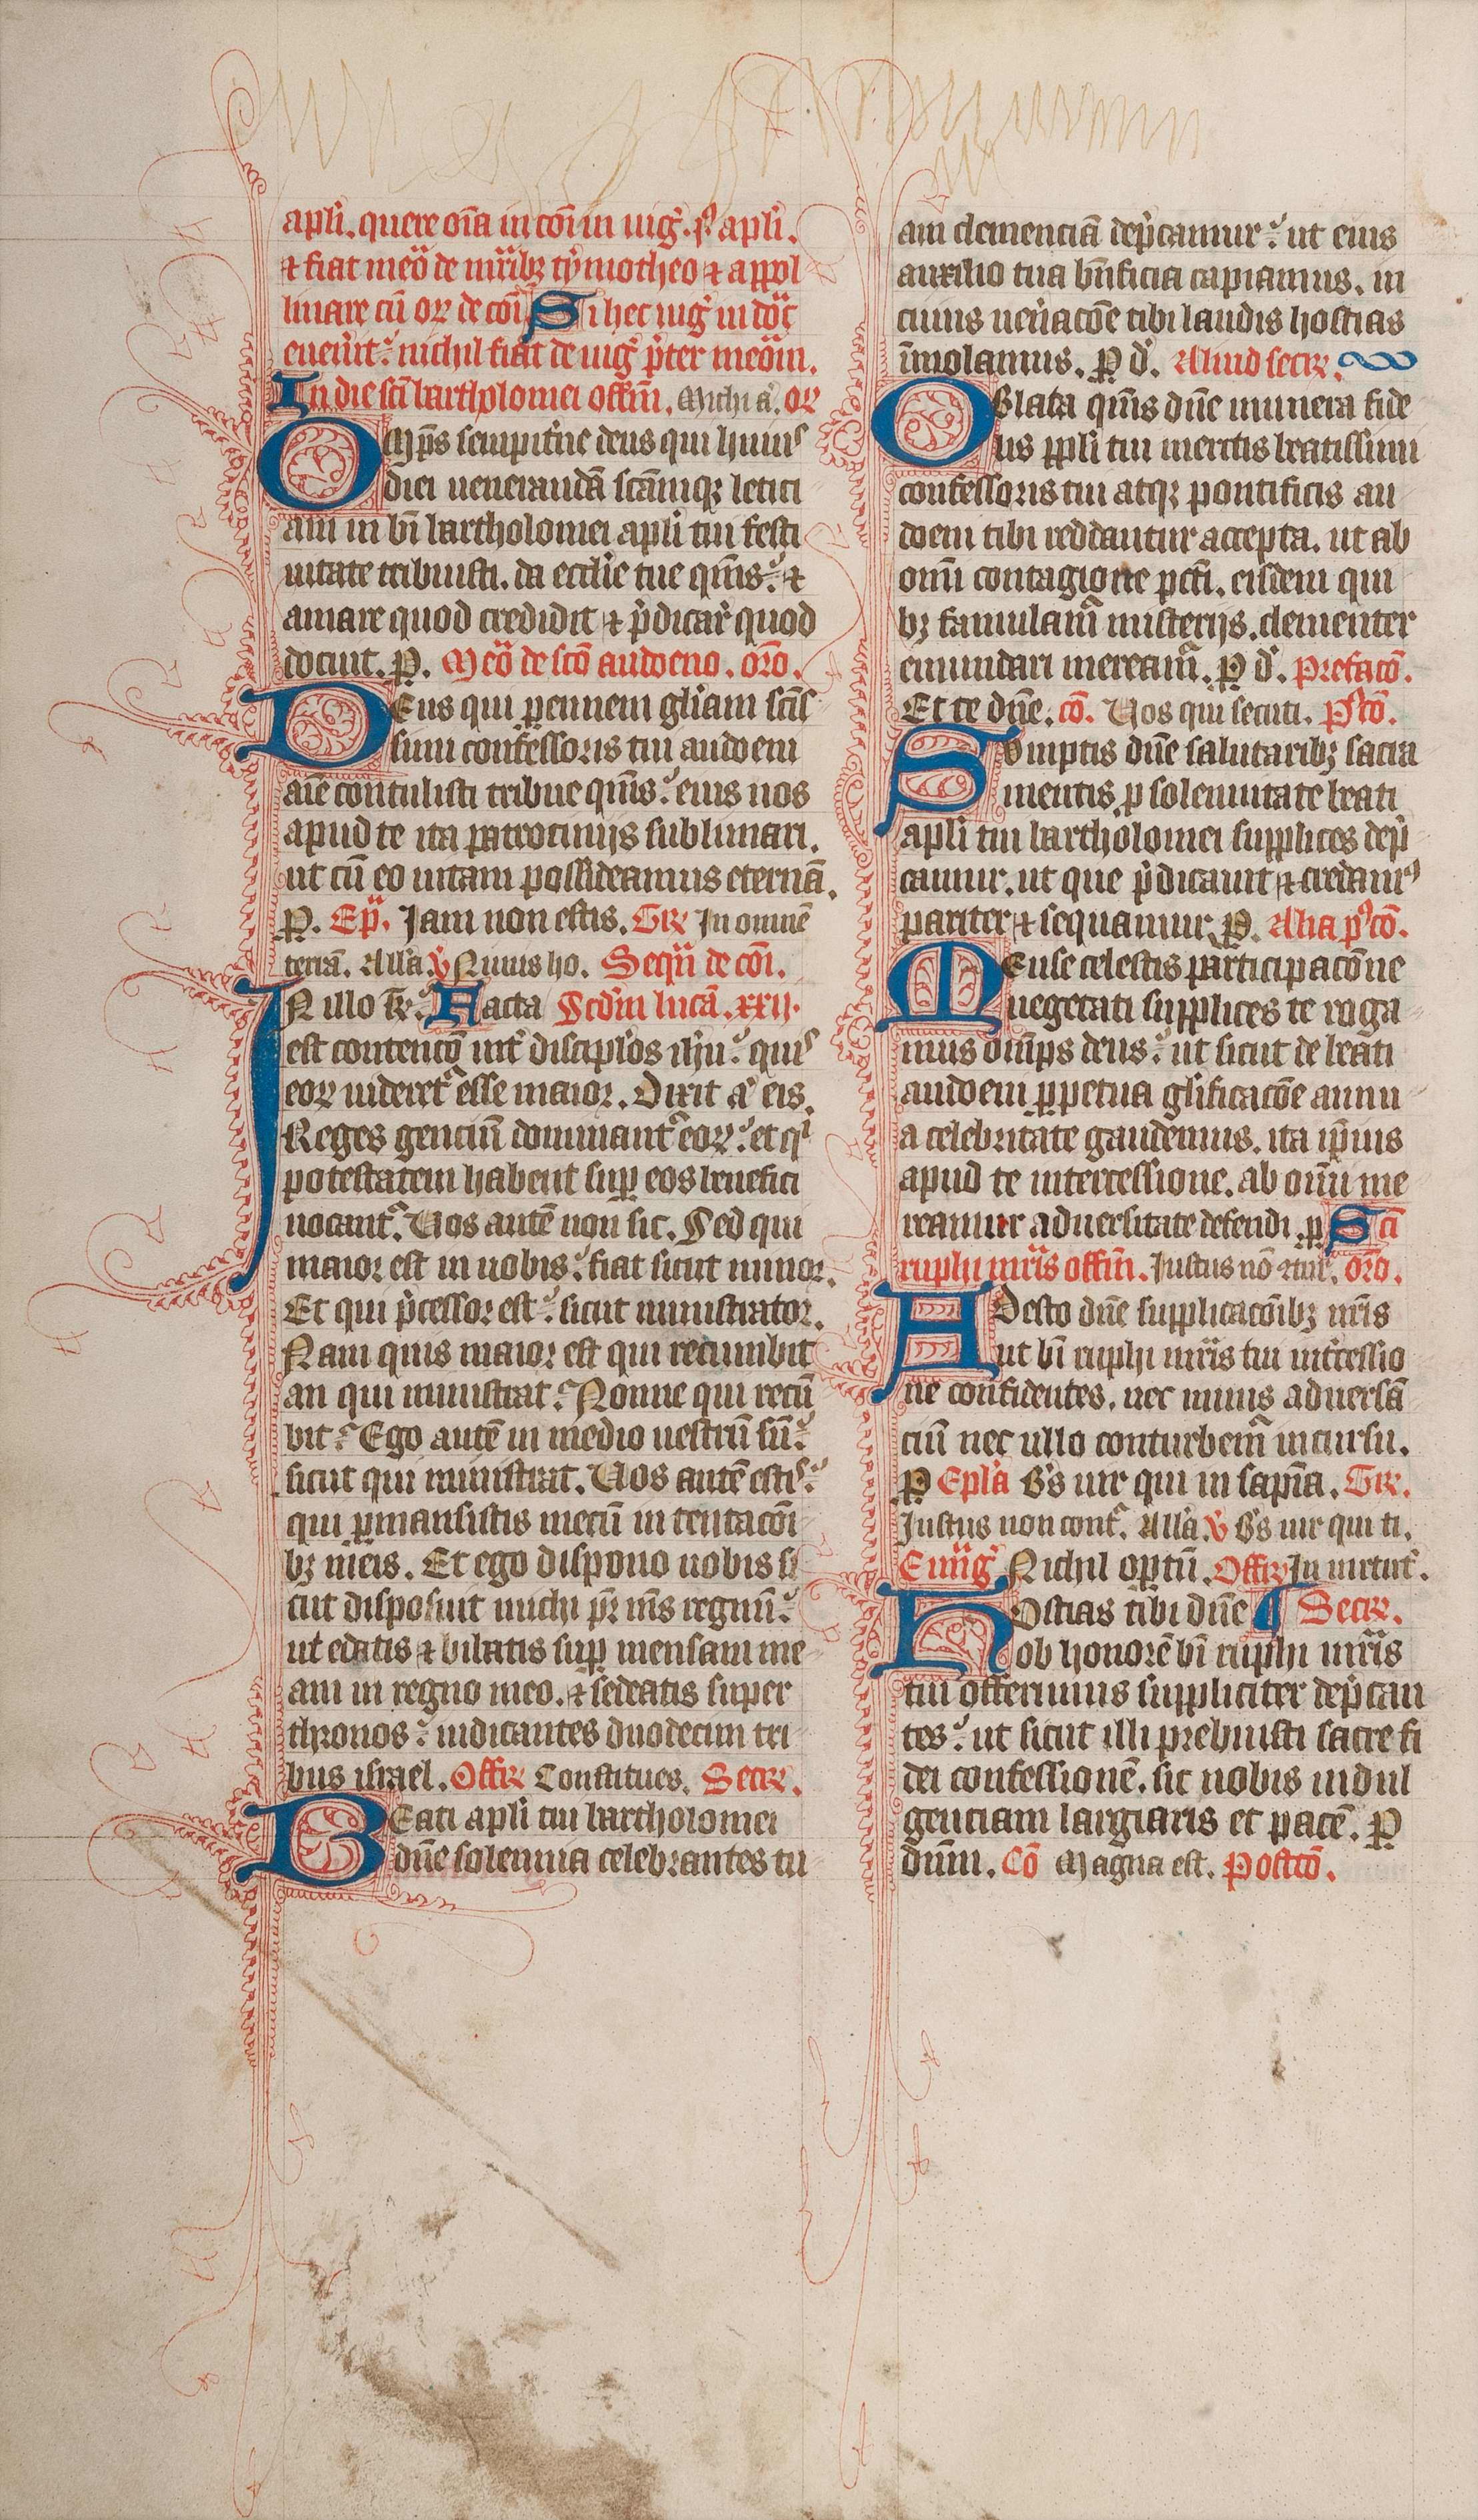 apl̄i. quere om̄a in com̄ in uig̉. sͥ apl̄i.
⁊ fiat meō de mr̄ibꝫ tymotheo ⁊ appol
linare cū or̄ de com̄ Si hec uig̉ in dōc̄
euen̉it nichil fiat de uig̉ p̉ter meōm.
In die sc̄i bartholomei offm̄. Michi a̅. oꝝ
OMp̄s sempit̉ne deus qui huiꝰ
diei uenerandā scāmqꝫ letici
am in bī bartholomei apl̄i tui festi
uitate tribuisti. da eccl̄ie tue qm̄s ⁊
amare quod credidit ⁊ p̉dicar̉ quod
docuit. ꝑ. Meō de scō audoeno. or̄o.
DEus qui ꝑennem gl̄iam scīs
simi confessoris tui audoeni
aīe contulisti tribue qm̄s eius nos
apud te ita patrocinijs sublimari.
ut cū eo uitam possideamus eternā.
ꝑ. Ep̄a. Jam non estis. Gꝶ In omnē
terrā. All̄a ℣ Nimis ho. Sequī de com̄.
IN illo t̄e Facta Scd̄m lucā. xxij.
est contencō int̉ discipl̄os ih̄u quiˢ
eoꝝ uideretᷓ esse maior. Dixit aͥ eis.
Reges genciū dominantᷓ eoꝝ et qͥ
potestatem habent suꝑ eos benefici
uocantᷓ. Uos autē non sic. Sed qui
maior est in uobis fiat sicut minor.
Et qui p̉cessor est sicut ministrator.
Nam quis maior est qui recumbit
an qui ministrat Nonne qui recū
bit Ego autē in medio uestrū sū
sicut qui ministrat. Uos autē estiˢ
qui ꝑmansistis mecū in tentacōi
bꝫ meis. Et ego dispono uobis si
cut disposuit michi pr̄ m̄s regnū
ut edatis ⁊ bibatis suꝑ mensam me
am in regno meo. ⁊ sedeatis super
thronos iudicantes duodecim tri
bus israel. Offꝝ Constitues. Secꝝ.
BEati apl̄i tui bartholomei
dn̄e solennia celebrantes tu
am clemenciā dep̉camur ut eius
auxilio tua bn̄ficia capiamus. in
cuius uen̉acōe tibi laudis hostias
īmolamus. ꝑ d̉. Aliud secꝝ.
OBlata qm̄s dn̄e munera fide
lis ppl̄i tui meritis beatissimi
confessoris tui atqꝫ pontificis au
doeni tibi reddantur accepta. ut ab
om̄i contagione pct̄i. eisdem qui
bꝫ famulamᷓ misterijs. clementer
emundari mereamᷓ. ꝑ d̉. Prefacō.
Et te dn̄e. cō. Uos qui secuti. Pꝰcō.
SUmptis dn̄e salutaribꝫ sacra
mentis ꝑ solennitate beati
apl̄i tui bartholomei supplices dep̉
camur. ut que p̉dicauit ⁊ credamꝰ
pariter ⁊ sequamur. ꝑ. Alia pꝰcō.
MEnse celestis participacōne
uegetati supplices te roga
mus om̄ps deus ut sicut de beati
audoeni ꝑpetua gl̄ificacōe annu
a celebritate gaudemus. ita ip̄ius
apud te intercessione. ab om̄i me
reamur aduersitate defendi. ꝑ Sc̄i
ruphi mr̄is offm̄. Justus nō tur̉. or̄o.
ADesto dn̄e supplicacōibꝫ nr̄is
ut bī ruphi mr̄is tui int̉cessio
ne confidentes. nec minis aduersā
ciū nec ullo conturbemᷓ incursu.
ꝑ Epl̄a B̄s uir qui in sapīa. Gꝶ.
Justus non contᷓ. All̄a ℣ B̄s uir qui ti.
Euūg̉ Nichil optū. Offꝝ In uirtut̉.
HOstias tibi dn̄e Secꝝ.
ob honorē bī ruphi mr̄is
tui offerimus suppliciter dep̉can
tes ut sicut illi prebuisti sacre fi
dei confessionē. sic nobis indul
genciam largiaris et pacē. ꝑ
dn̄m. Cō Magna est. Postcō.